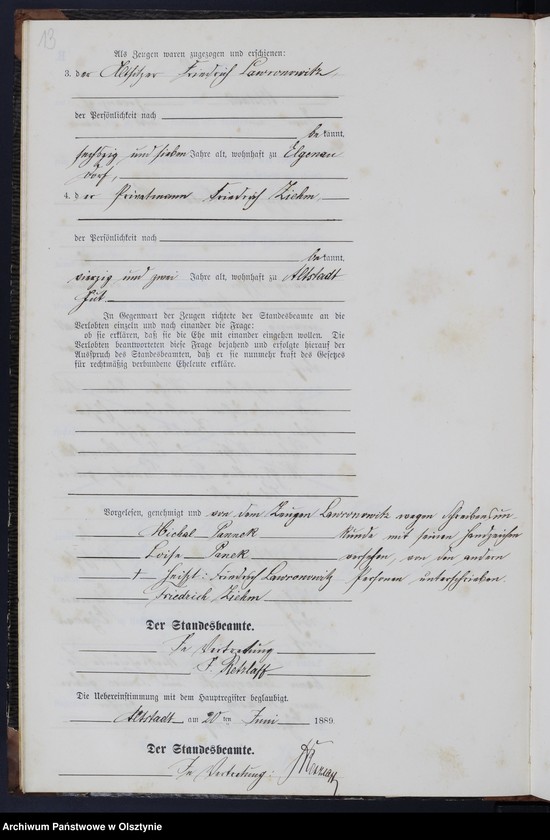 13
Als Zeugen waren zugezogen und erschienen:
3. der Altsitzer Friedrich Lawronowitz
der Persönlichkeit nach
be kannt,
sechszig und sieben Jahre alt, wohnhaft zu Elgenau
Dorf,
4. d er Privatmann Friedrich Ziehm
der Persönlichkeit nach
be kannt,
vierzig und zwei Jahre alt, wohnhaft zu Altstadt
Gut
In Gegenwart der Zeugen richtete der Standesbeamte an die
Verlobten einzeln und nach einander die Frage:
ob sie erklären, daß sie die Ehe mit einander eingehen wollen. Die
Verlobten beantworteten diese Frage bejahend und erfolgte hierauf der
Ausspruch des Standesbeamten, daß er sie nunmehr kraft des Gesetzes
für rechtmäßig verbundene Eheleute erkläre.
Vorgelesen, genehmigt und von dem Zeugen Lawronowitz wegen Schreibensun
Michal Pannek kunde mit seinen Handzeichen
Luise Panek versehen, von den andern
+ heißt: Friedrich Lawronowitz Personen unterschrieben.
Friedrich Ziehm
Der Standesbeamte.
In Vertretung
F. Retzlaff
Die Uebereinstimmung mit dem Hauptregister beglaubigt.
Altstadt am 20 ten Juni 1889.
Der Standesbeamte.
In Vertretung:
Archiwum Państwowe w Olsztynie